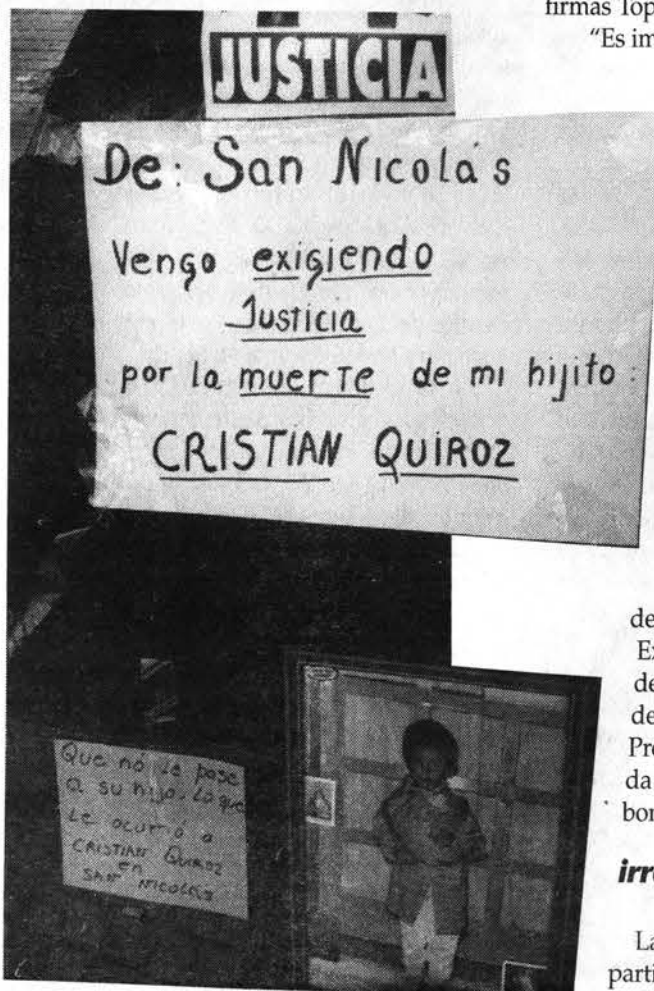 firmas Top
“Es im
JUSTICIA
De: San Nicolás
Vengo exigiendo
Justicia
por la muerte de mi hijito:
CRISTIAN QUIROZ
Que no le pase
a su hijo. Lo que
Le ocurrió a
CRISTIAN QUIROZ
en
SAN NICOLÁS
de
Ex
de
de
Pre
da
bor
irre
La
parti